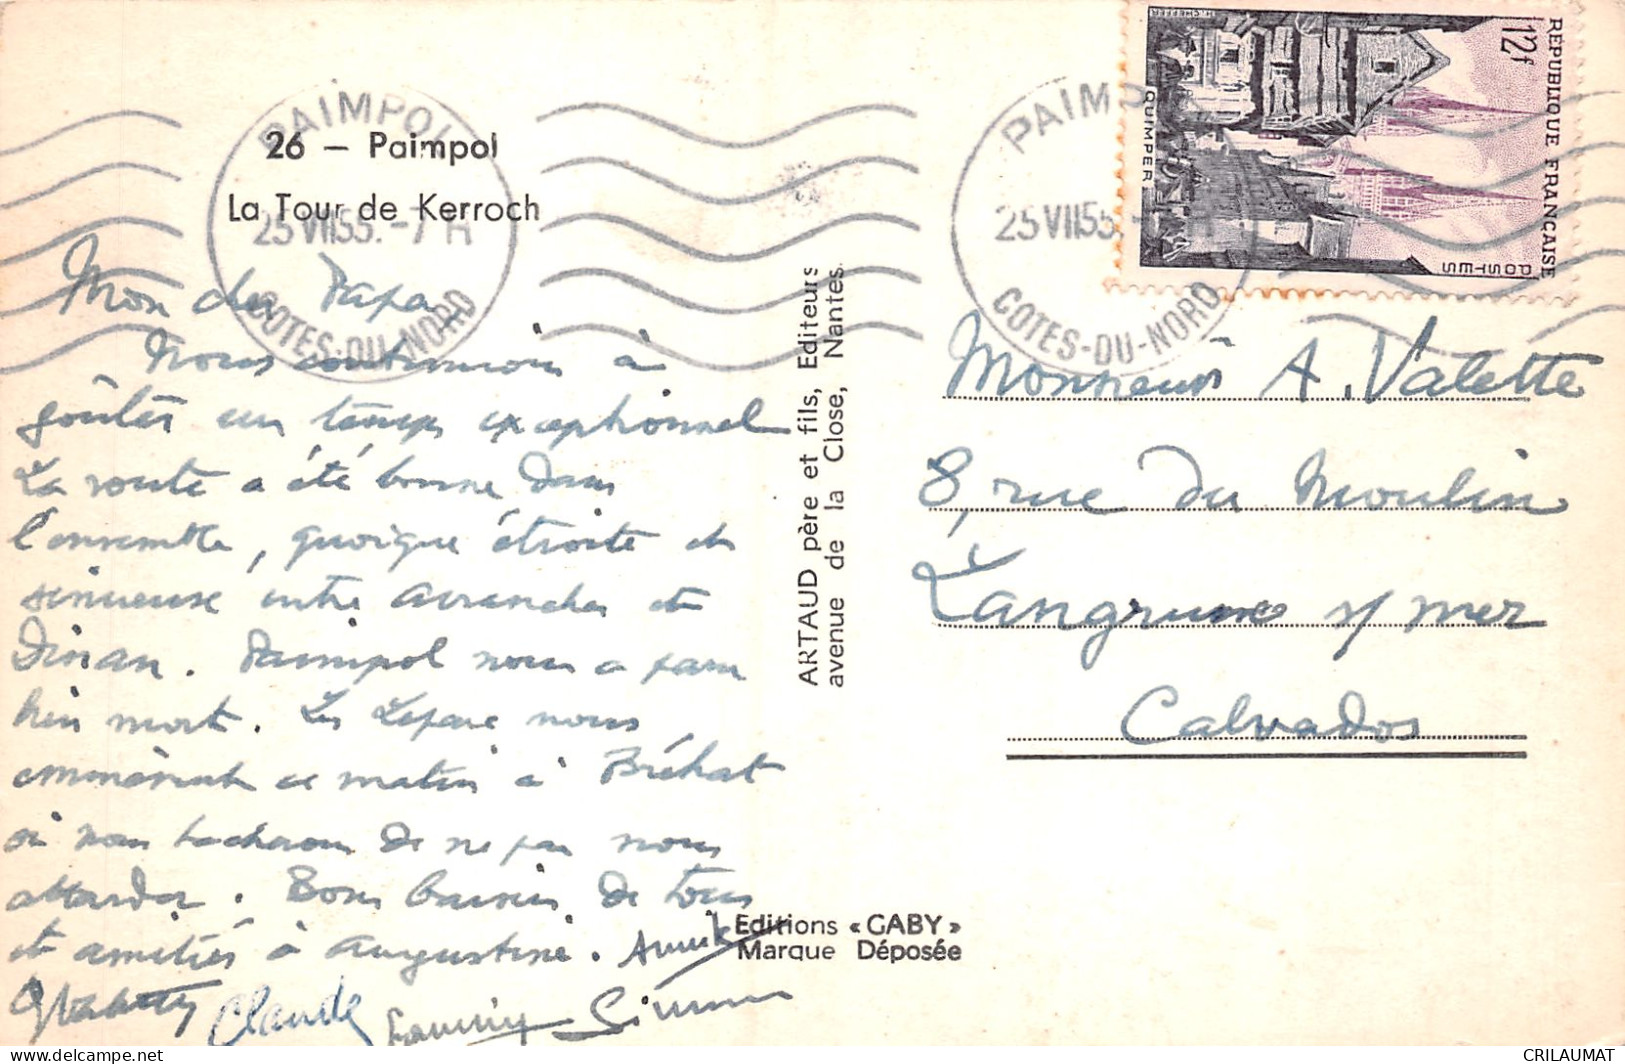 26 — Paimpol
La Tour de Kerroch
PAIMPOL
25 VII 55. - 7 H
COTES-DU-NORD
Mon cher Papa,
Nous continuons à
goûter un temps exceptionnel
La route a été bonne dans
l'ensemble, quoique étroite et
sinueuse entre Avranches et
Dinan. Paimpol nous a paru
bien mort. Les nous
emmènent ce matin à Bréhat
où nous tacherons de ne pas nous
attarder. Bons baisers de tous
et amitiés à Augustine. Annick
Claude Simone
ARTAUD père et fils, Editeurs
avenue de la Close, Nantes.
Editions « GABY »
Marque Déposée
PAIM
25 VII 55.
COTES-DU-NORD
REPUBLIQUE FRANÇAISE
POSTES
12f
QUIMPER
Monsieur A. Valette
8, rue du Moulin
Langrune s/ mer
Calvados
CRILAUMAT